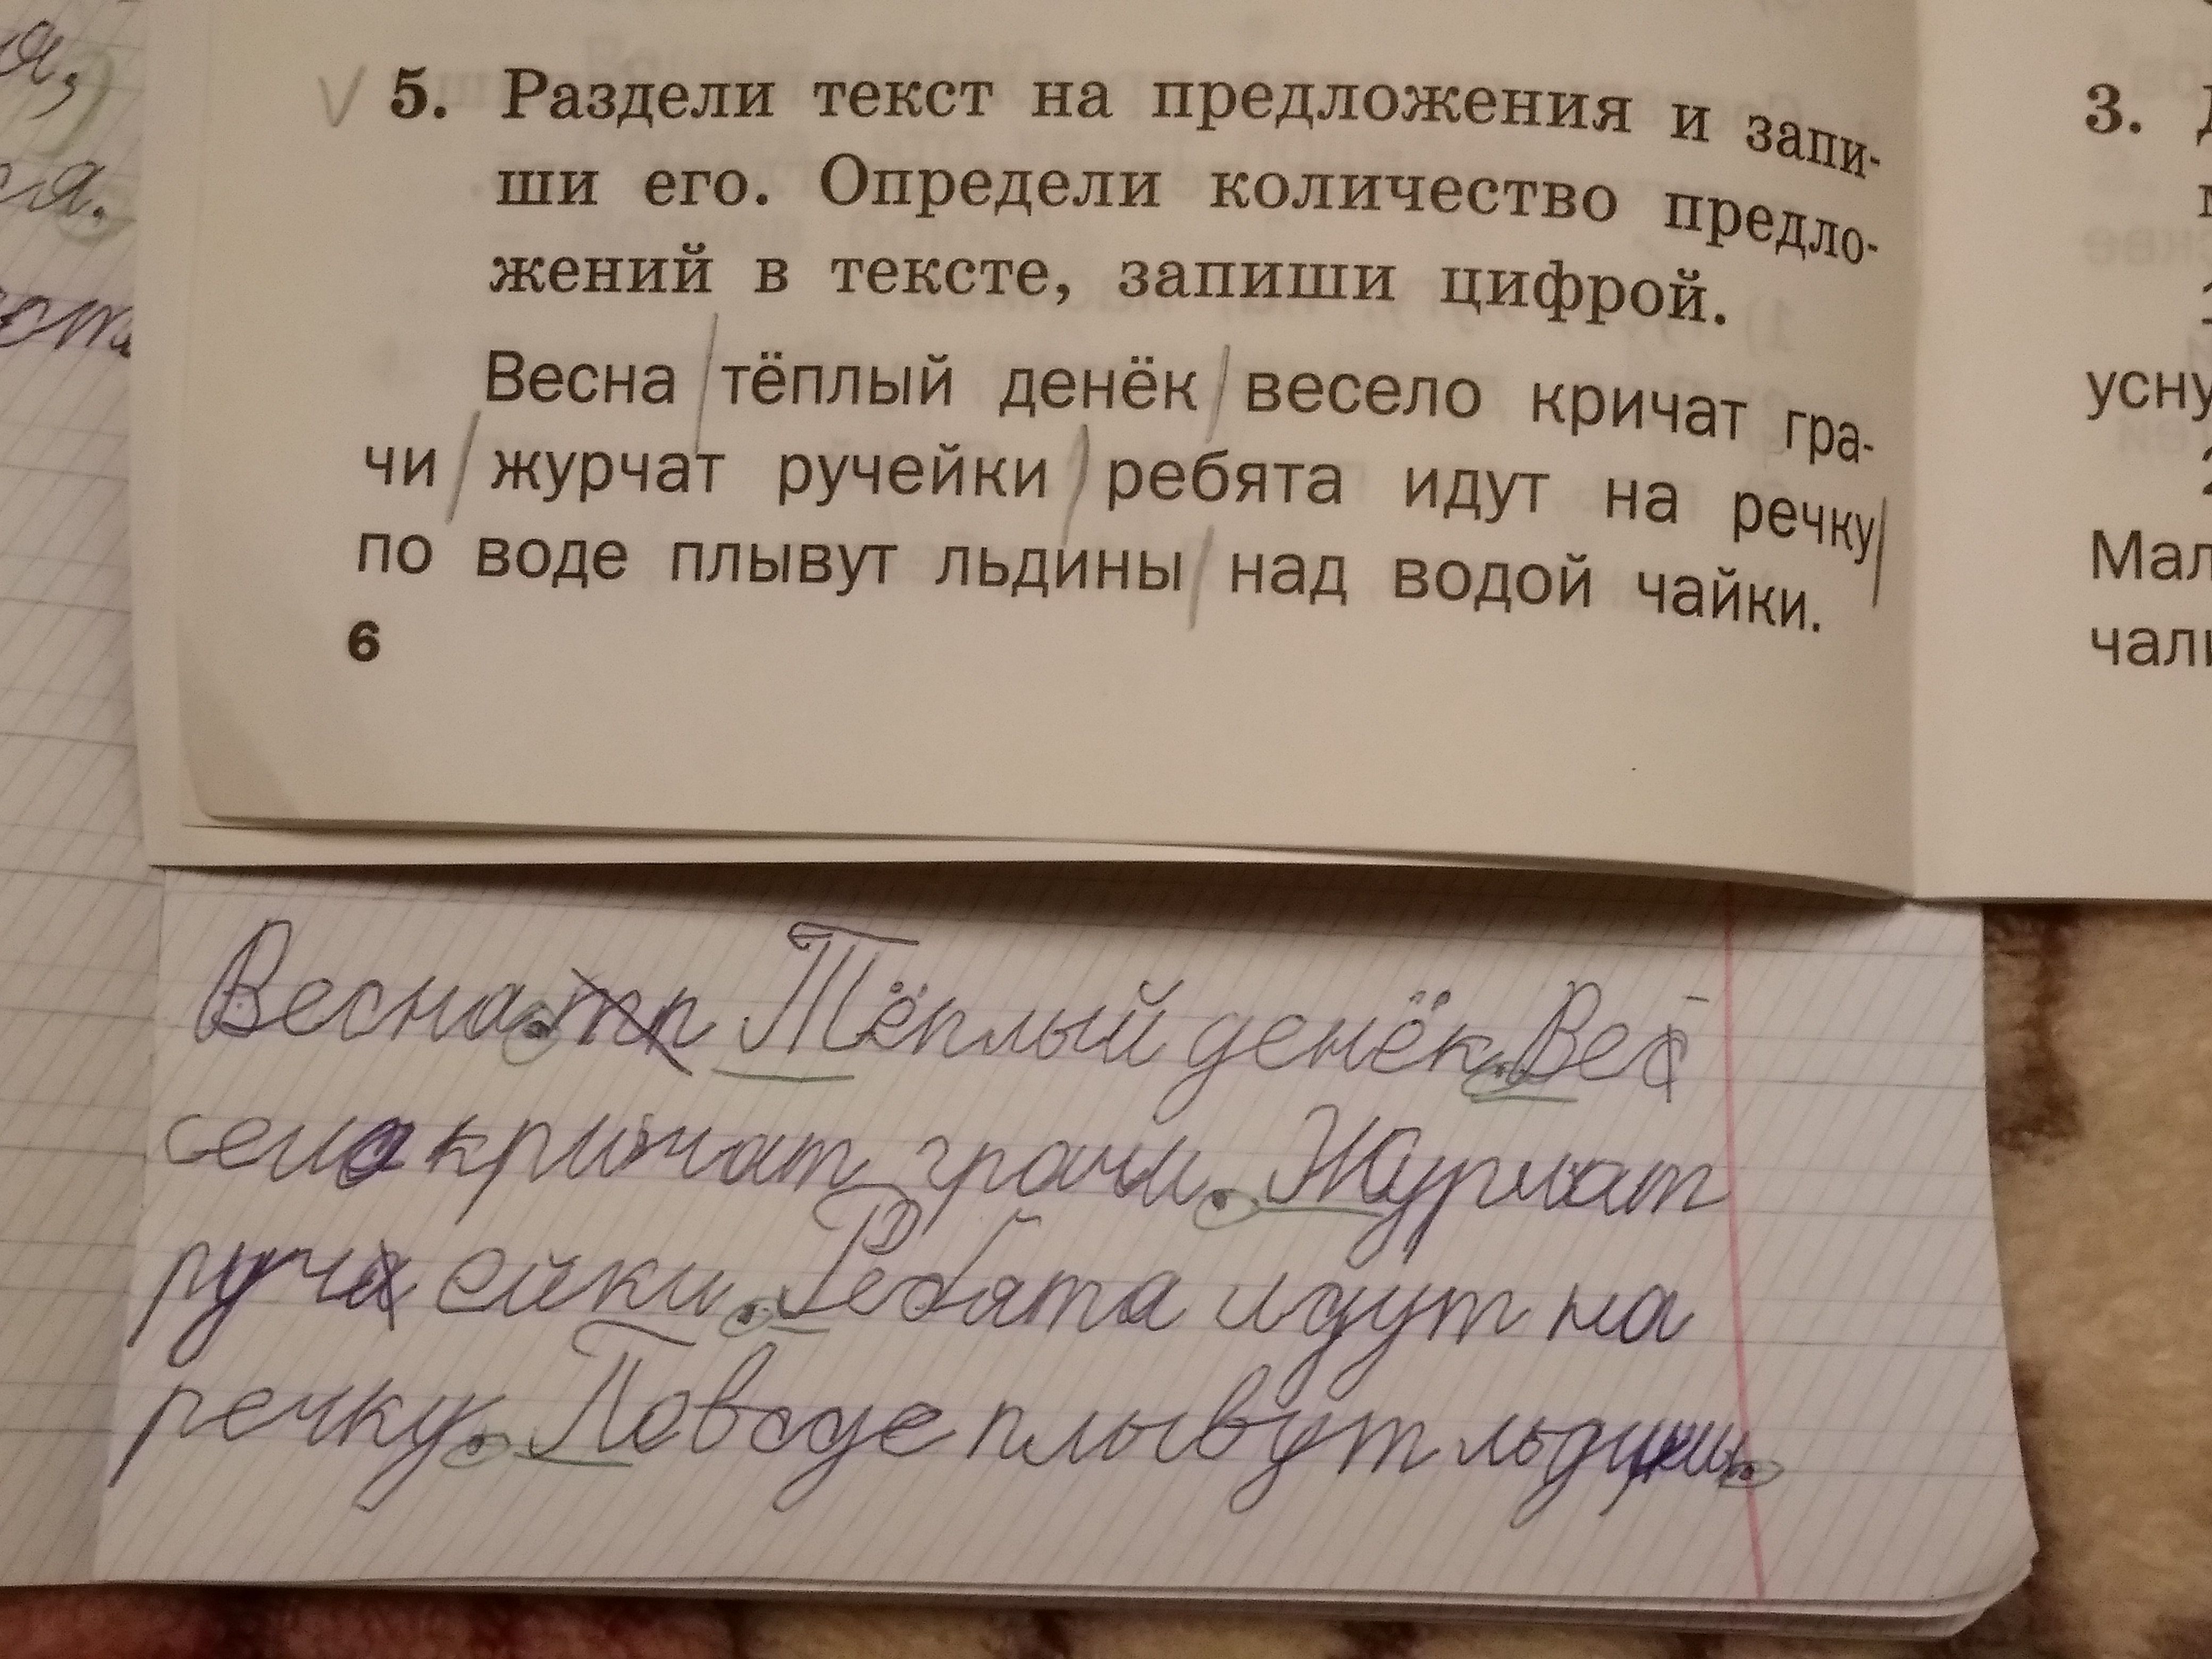 я,
ся.
5. Раздели текст на предложения и запи-
ши его. Определи количество предло-
жений в тексте, запиши цифрой.
Весна / тёплый денёк / весело кричат гра-
чи / журчат ручейки / ребята идут на речку /
по воде плывут льдины / над водой чайки.
6
3.
усну
Мал
чали
Весна. Тёплый денёк. Ве-
село кричат грачи. Журчат
руч ейки. Ребята идут на
речку. По воде плывут льдины.